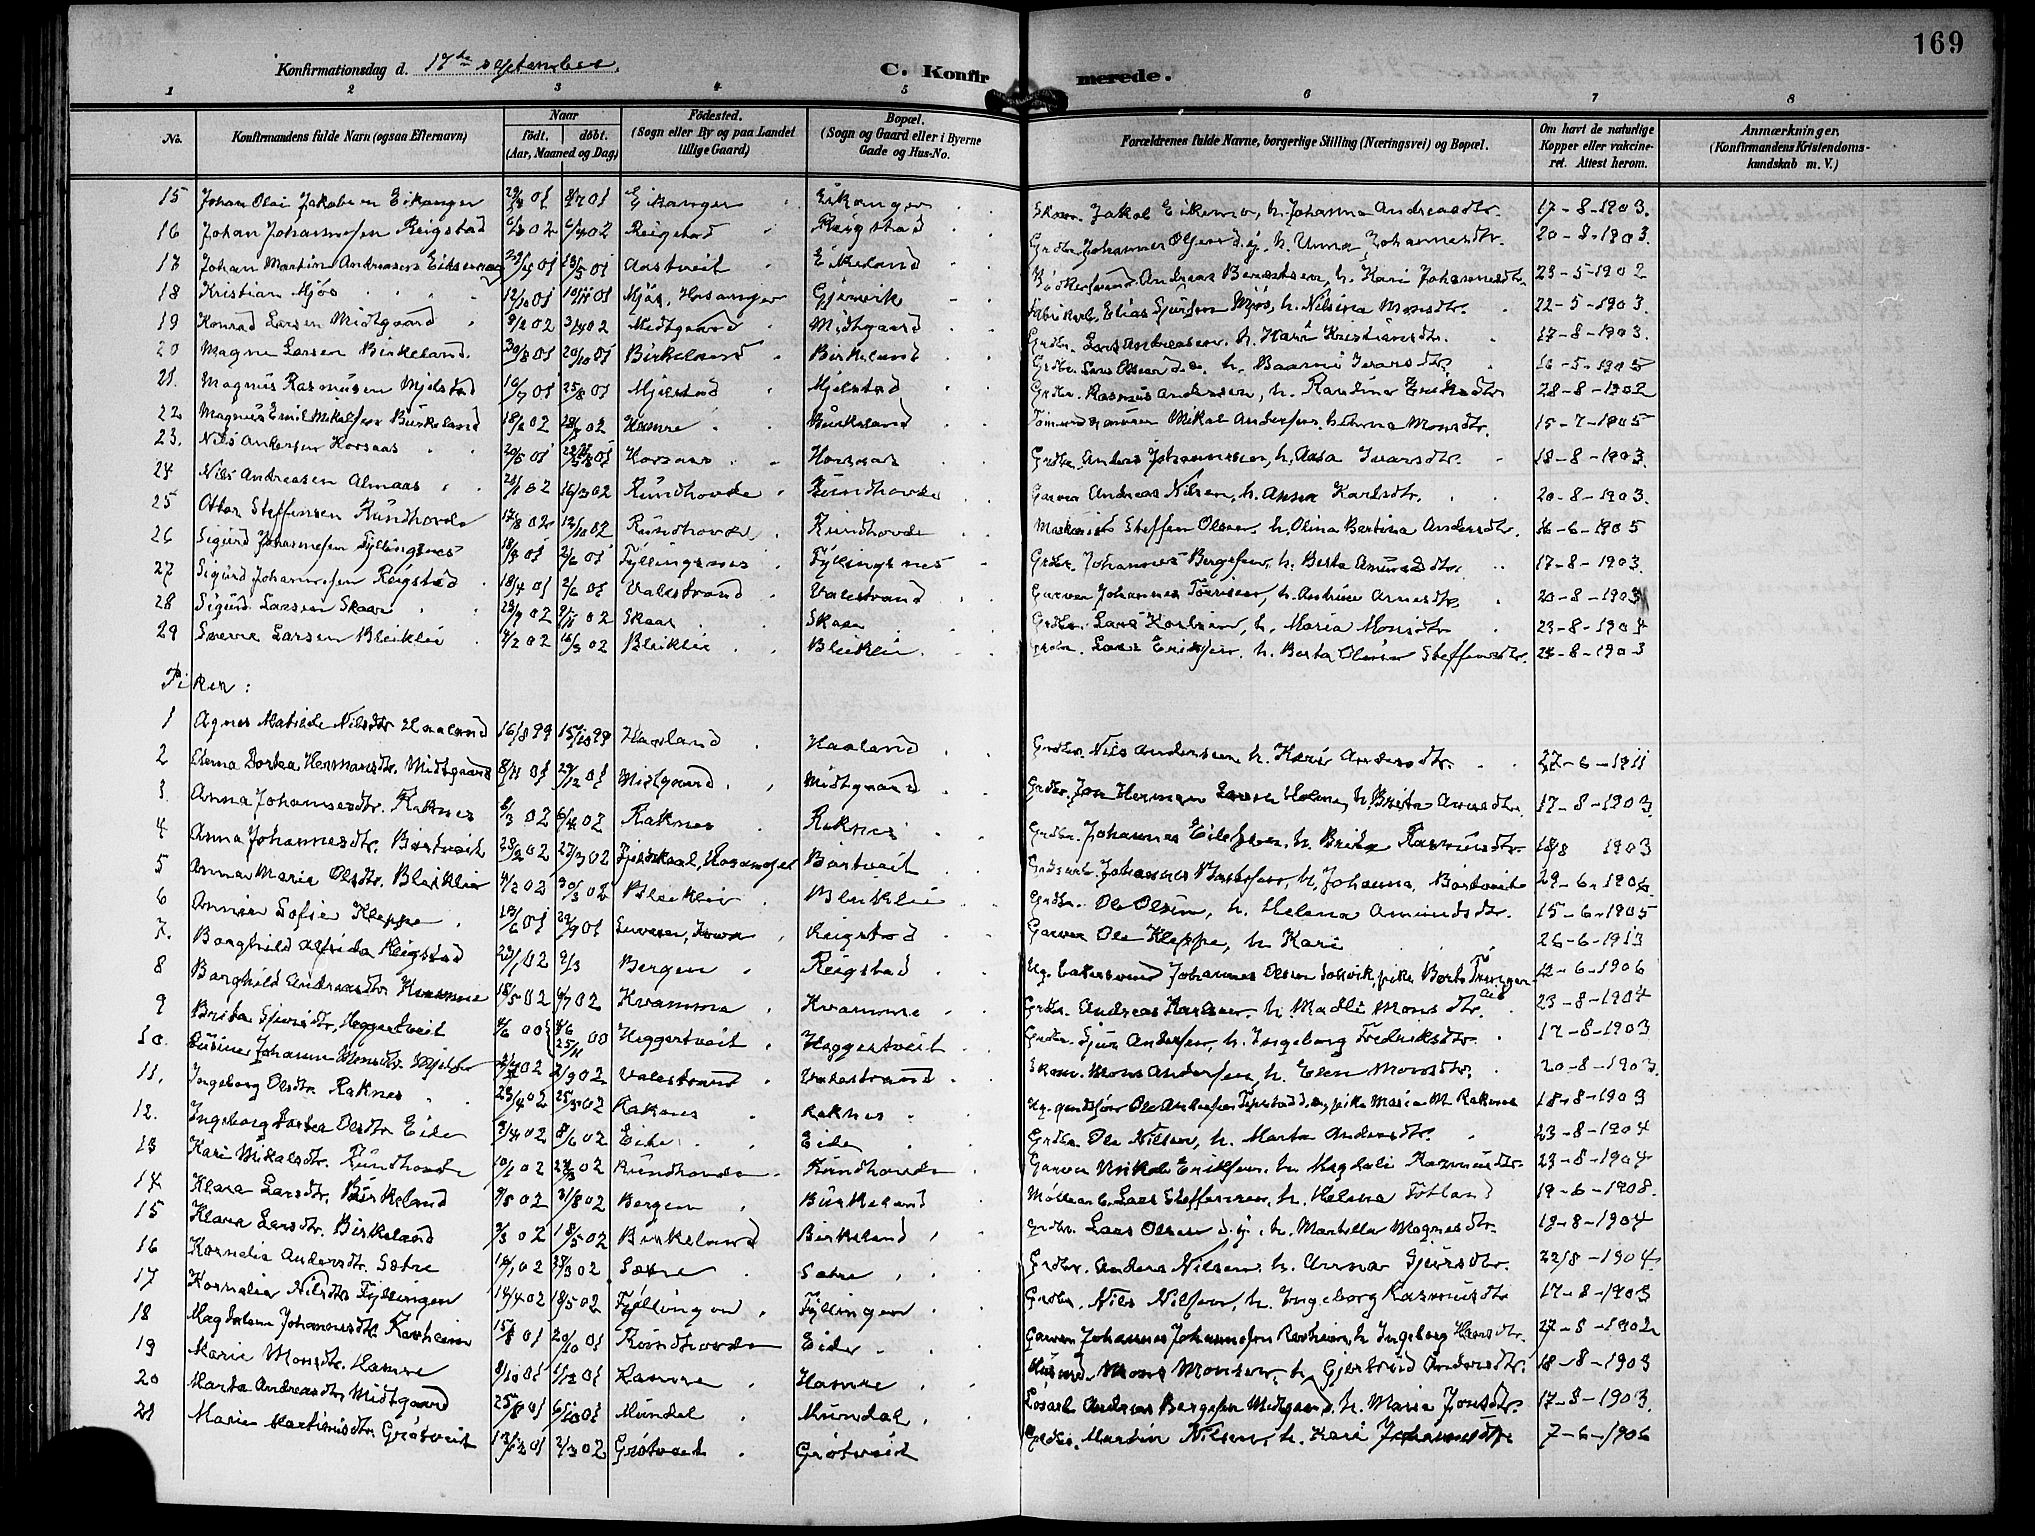 169
Konfirmationsdag d. 17de september.
C. Konfirmerede.
1 2 3 4 5 6 7 8
No. Konfirmandens fulde Navn (ogsaa Efternavn) Naar født. døbt. (Aar, Maaned og Dag) Fødested. (Sogn eller By og paa Landet tillige Gaard) Bopæl. (Sogn og Gaard eller i Byerne Gade og Hus-No. Forældrenes fulde Navne, borgerlige Stilling (Næringsvei) og Bopæl. Om havt de naturlige Kopper eller vakcineret. Attest herom. Anmærkninger, (Konfirmandens Kristendomskundskab m. V.)
15 Johan Olai Jakobsen Eikanger Eikanger Eikanger Jakob h. Johanna Andreasdtr. 17-8-1903.
16 Johan Johannessen Reigstad 6/3 02 6/4 02 Reigstad Reigstad Grdbr. Johannes Olsen d.y. h. Unna Johannesdtr. 20-8-1903.
17 Johan Martin Andreasen 13/5 01 Aastveit Eikeland Andreas Berentsen, h. Kari Johannesdtr. 23-5-1902
18 Kristian Mjøs 12/10 01 Mjøs, Hosanger Gjervik Elias Sjursen Mjøs, h. Nilsina Monsdtr. 22-5-1903.
19 Konrad Larsen Midtgaard 9/2 02 31/4 02 Midtgaard Midtgaard Grdbr. Lars Andreasen. h. Kari Kristiansdtr. 17-8-1903.
20 Magne Larsen Birkeland. 30/8 01 20/10 01 Birkeland Birkeland Grdbr. Lars Olsen d.e. h. Ivarsdtr. 16-5-1905
21. Magnus Rasmusen Mjelstad 16/7 01 25/8 01 Mjelstad Mjelstad Grdbr. Rasmus Andersen, h. Randina 28-8-1902
22 Magnus Emil Mikalsen Birkeland 18/2 02 Hamre Birkeland Mikal Andersen h. Anna Monsdtr. 15-7-1905
23. Nils Andersen Horsaas 20/5 01 Horsaas Horsaas Grdbr. Anders Johannesen, h. Aasa Ivarsdtr. 18-8-1903.
24 Nils Andreasen Almaas 16/3 02 Rundhovde Rundhovde Garver Andreas Nilsen, h. Anna Karlsdtr. 20-8-1903.
25 Ottar Steffensen Rundhovde 17/8 02 12/10 02 Rundhovde Rundhovde Maskinist Steffen Olsen h. Olina Bertina Andersdtr. 16-6-1905
26 Sigurd Johannessen Fyllingsnes Fyllingsnes Fyllingsnes Grdbr. Johannes Bergesen, h. Berta Amundsdtr. 17-8-1903.
27 Sigurd Johannessen Reigstad 18/4 01 2/6 01 Valestrand Valestrand Garver Johannes h. Andrine Arnesdtr. 20-8-1903
28 Sigurd Larsen Skaar Skaar Skaar Grdbr. Lars Karlsen, h. Maria Monsdtr. 23-8-1904
29 Sverre Larsen Bleiklie 9/2 02 16/3 02 Bleiklie Bleiklie Grdbr. Lars Eriksen. h. Berta Olina Steffensdtr. 24-8-1903
Piker:
1 Agnes Matilde Nilsdtr. Haaland 16/8 99 15/10 99 Haaland Haaland Grdbr. Nils Andersen h. Kari Andersdtr. 27-6-1911
2 Dortea Hermansdtr. Midtgaard 8/11 01 29/12 01 Midtgaard Midtgaard Grdbr. Jon Herman Larsen Holme, h. Brita 17-8-1903
3. Anna Johannesdtr. Raknes 6/3 02 6/4 02 Raknes Raknes Grdbr. Johannes h. Brita Rasmusdtr. 18/8 1903
4 Anna Johannesdtr. Børtveit 28/2 02 27/3 02 Hosanger Børtveit Johannes h. Johanna Børtveit 29-6-1906
5 Anna Marie Olsdtr. Bleiklie 9/2 02 30/3 02 Bleiklie Bleiklie Grdbr. Ole Olsen, h. Helena Amundsdtr. 15-6-1905
6 Annie Sofie Kleppe 29/9 01 Reigstad Garver Ole Kleppe, h. Kari 26-6-1913
7. Borghild Alfrida Reigstad 23/1 02 9/3 Bergen Reigstad Ug. Johannes Olsen pike 12-6-1906
8 Borghild Andreasdtr. Kvamme 18/5 02 6/7 02 Kvamme Kvamme Grdbr. Andreas Karlsen h. Madli Monsdtr. 23-8-1904
9 Brita Sjursdtr. Heggertveit 00 25/11 00 Heggertveit Heggertveit Grdbr. Sjur Andersen, h. Ingeborg Fredriksdtr. 17-8-1903
10. Johanne Monsdtr. 02 2/9 02 Valestrand Valestrand Mons Andersen, h. Elen Monsdtr. 20-8-1903.
11. Ingeborg Olsdtr. Raknes 23/4 02 25/5 02 Raknes Raknes Ug. Ole Andersen pike Maria M. Raknes 18-8-1903
12. Ingeborg Olsdtr. Eide 3/4 02 8/6 02 Eide Eide Grdbr. Ole Nilsen, h. Marta Andersdtr. 23-8-1904
13 Kari Mikalsdtr. Rundhovde 10/1 02 Rundhovde Rundhovde Garver Mikal Eriksen h. Magdali Rasmusdtr. 23-8-1904
14 Klara Larsdtr. Birkeland 9/5 02 31/8 02 Bergen Birkeland Lars Steffensen, h. Helena Totland 19-6-1908.
15 Klara Larsdtr. Birkeland 3/3 02 18/5 02 Birkeland Birkeland Grdbr. Lars Olsen d.y. h. Martella Magnesdtr. 19-8-1904
16 Kornelia Andersdtr. Sætre 02 Sætre Sætre Grdbr. Anders Nilsen h. Anna Sjursdtr. 22/8-1904.
17 Kornelia Nilsdtr. Fyllingen 14/4 02 18/5 02 Fyllingen Fyllingen Grdbr. Nils Nilsen, h. Ingeborg Rasmusdtr. 17-8-1903
18 Magdalena Johannesdtr. 01 20/10 01 Rundhovde Eide Garver Johannes Johannessen h. Ingeborg 27-8-1902
19 Marie Monsdtr. Hamre 8/10 01 Hamre Hamre Mons Monsen h. Gjertrud Andersdtr. 18-8-1903
20 Marta Andreasdtr. Midtgaard 01 Mundal Mundal Andreas Bergesen Midtgaard h. Maria Jonsdtr. 17-8-1903.
21 Marie Martinusdtr. Grøtveit 2/3 02 Grøtveit Grøtveit Grdbr. Martin Nilsen, h. Kari Johannesdtr. 7-6-1906